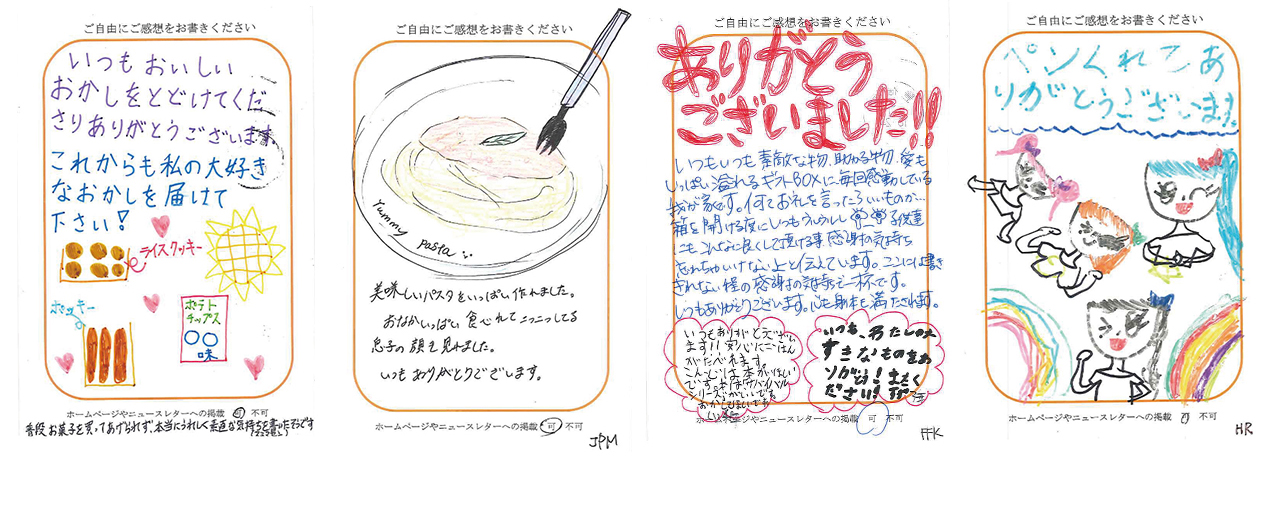 ご自由にご感想をお書きください
いつもおいしい
おかしをとどけてくだ
さりありがとうございます。
これからも私の大好き
なおかしを届けて
下さい!
ライスクッキー
ポッキー
ポテト
チップス
○○
味
ホームページやニュースレターへの掲載 可 不可
普段お菓子を買ってあげられず、本当にうれしく素直な気持ちを書いたそうです
ご自由にご感想をお書きください
Yummy pasta
美味しいパスタをいっぱい作れました。
おなかいっぱい食べれてニコニコしてる
息子の顔を見れました。
いつもありがとうございます。
ホームページやニュースレターへの掲載 可 不可
JPM
ご自由にご感想をお書きください
ありがとう
ございました!!
いつもいつも素敵な物、助かる物、愛も
いっぱい溢れるギフトBOXに毎回感動している
我が家です。何てお礼を言ったらいいものか…
箱を開ける度にいつもうるうるし 子供達
にもこんなに良くして頂ける事感謝の気持ち
忘れちゃいけないよと伝えています。ここには書き
きれない程の感謝の気持ちで一杯です。
いつもありがとうございます。心も身体も満たされます。
いつもありがとうござい
ます!!
がたべれます。
です。
シリーズがいいです。
いつも、わたしの大
すきなものをあ
りがとう!またく
ださい!
ホームページやニュースレターへの掲載 可 不可
FFK
ご自由にご感想をお書きください
ペンくれてあ
りがとうございました。
ホームページやニュースレターへの掲載 可 不可
HR